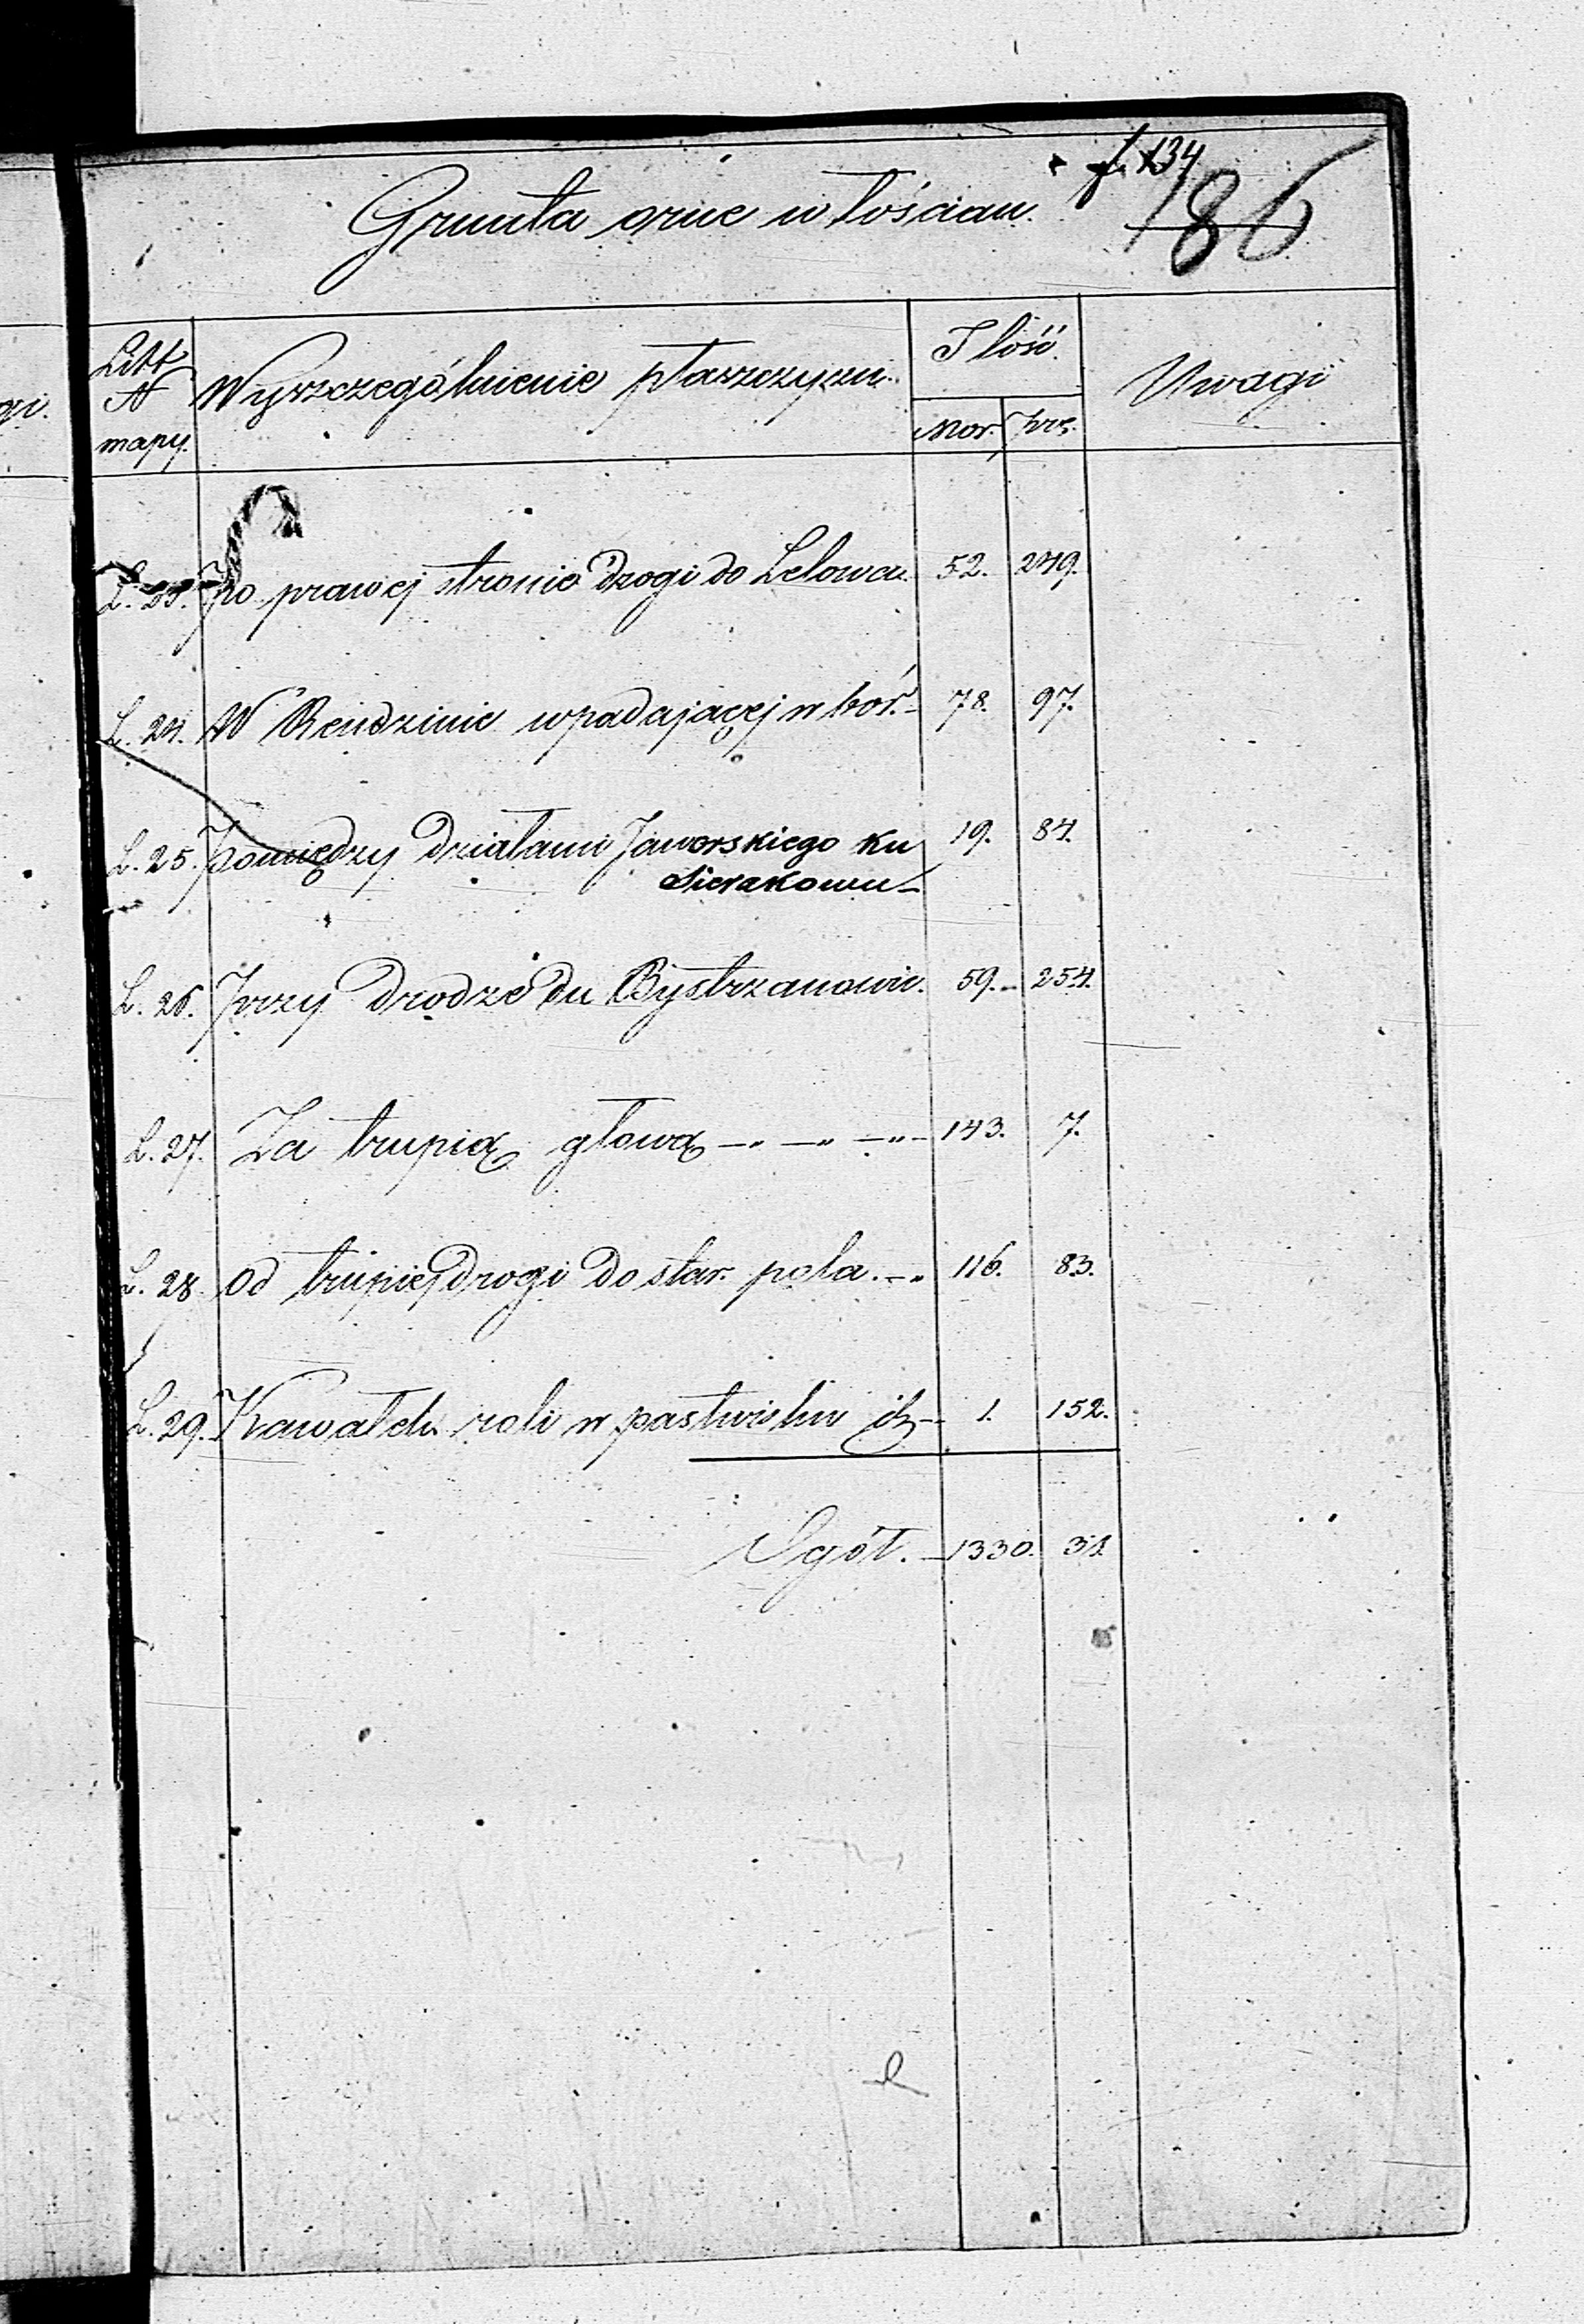 f. 134
186
Grunta orne włościan.
Litt. N mapy. Wyszczególnienie płaszczyzn. Ilość. Uwagi
Mor. Prę.
L. 23. Po prawej stronie drogi do Lelowa. 52. 249.
L. 24. W Rendzinie wpadającej w bór. 78. 97.
L. 25. Pomiędzy działami Jaworskiego ku 19. 84.
Sierakowu
L. 26. Przy drodze do Bystrzanowic. 59. 254.
L. 27. Za trupią głową 143. 7.
L. 28. Od trupiej drogi do star. pola. 116. 83.
L. 29. Kawałek roli w pastwisku 1. 152.
Ogół. 1330. 31.